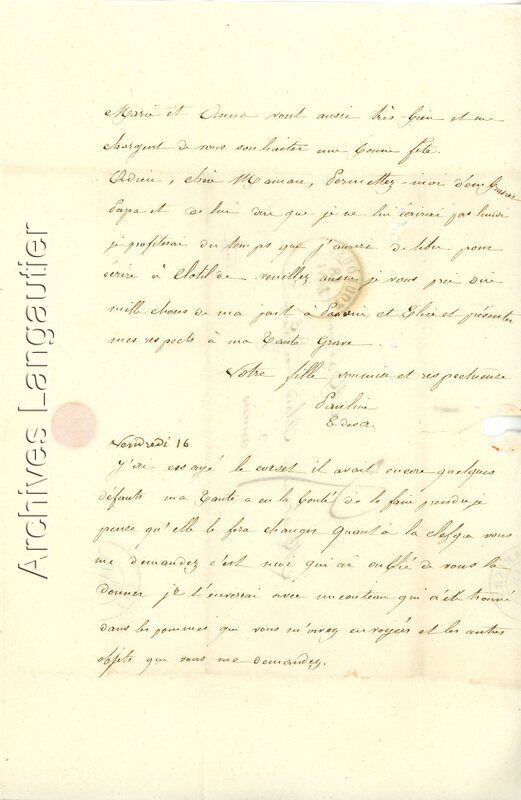 Marie et Anna vont aussi très bien et me
chargent de vous souhaiter une bonne fête.
Adieu, chère Maman, Permettez-moi d'embrasser
Papa et de lui dire que je ne lui écrirai pas lundi
je profiterai du temps que j'aurai de libre pour
écrire à Clotilde veuillez aussi je vous prie dire
mille choses de ma part à et Elise et présenter
mes respects à ma Tante Grave.
Votre fille soumise et respectueuse
Pauline
E. des A.
Vendredi 16
J'ai essayé le corset il avait encore quelques
défauts ma Tante a eu la bonté de le faire prendre je
pense qu'elle le fera changer Quant à la clef que vous
me demandez c'est moi qui ai oublié de vous la
donner je l'enverrai avec un couteau qui a été trouvé
dans les pommes que vous m'avez envoyées et les autres
objets que vous me demandez.
Archives Langautier